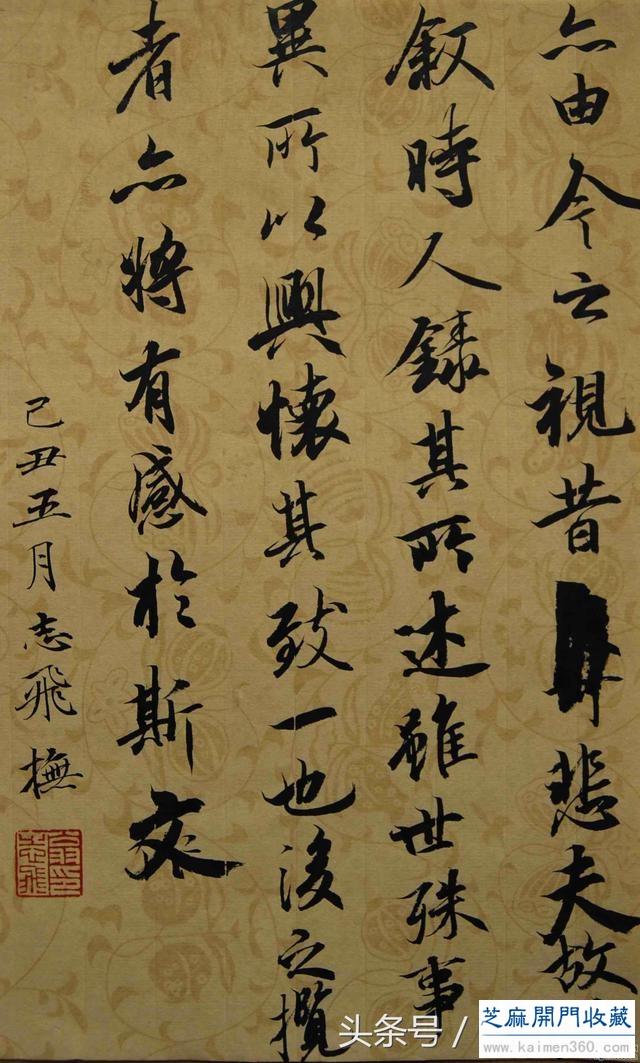 亦由今之視昔悲夫故
叙時人錄其所述雖世殊事
異所以興懷其致一也後之攬
者亦將有感於斯文
己丑五月志飛橅
头条号 /
芝麻開門收藏
www.kaimen360.com